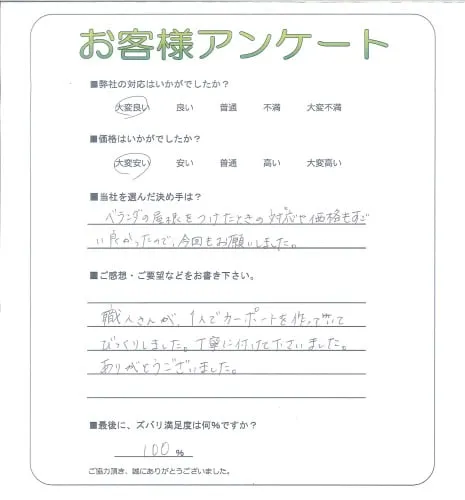 お客様アンケート
■弊社の対応はいかがでしたか？
大変良い 良い 普通 不満 大変不満
■価格はいかがでしたか？
大変安い 安い 普通 高い 大変高い
■当社を選んだ決め手は？
ベランダの屋根をつけたときの対応や価格もすご
い良かったので、今回もお願いしました。
■ご感想・ご要望などをお書き下さい。
職人さんが、1人でカーポートを作っていて
びっくりしました。丁寧に付けて下さいました。
ありがとうございました。
■最後に、ズバリ満足度は何%ですか？
100 %
ご協力頂き、誠にありがとうございました。